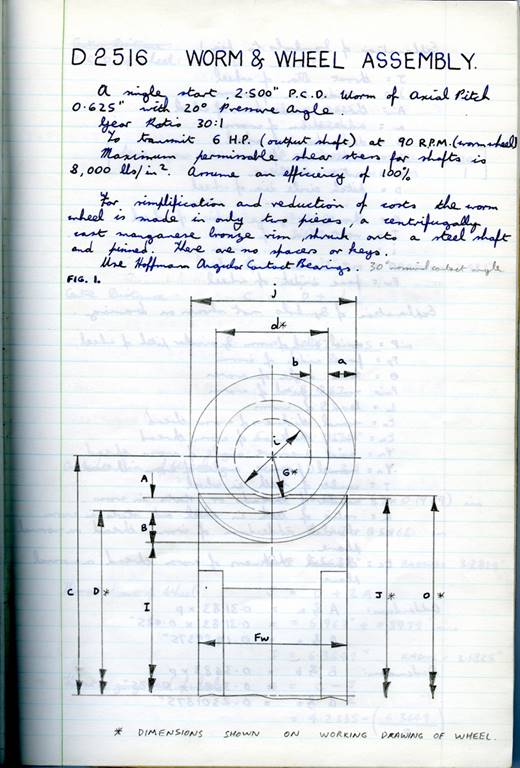 D2516 WORM & WHEEL ASSEMBLY.
A single start, 2.500" P.C.D. Worm of Axial Pitch
0.625" with 20° Pressure Angle.
Gear Ratio 30:1
To transmit 6 H.P. (output shaft) at 90 R.P.M. (wormwheel)
Maximum permissable shear stress for shafts is
8,000 lbs/in². Assume an efficiency of 100%
For simplification and reduction of costs the worm
wheel is made in only two pieces, a centrifugally
cast manganese bronze rim, shrunk onto a steel shaft
and pinned. There are no spacers or keys.
Use Hoffmann Angular Contact Bearings. 30° nominal contact angle
FIG. 1.
j
d*
b a
i
G*
A
B
C D* I J* O*
Fw
* DIMENSIONS SHOWN ON WORKING DRAWING OF WHEEL.